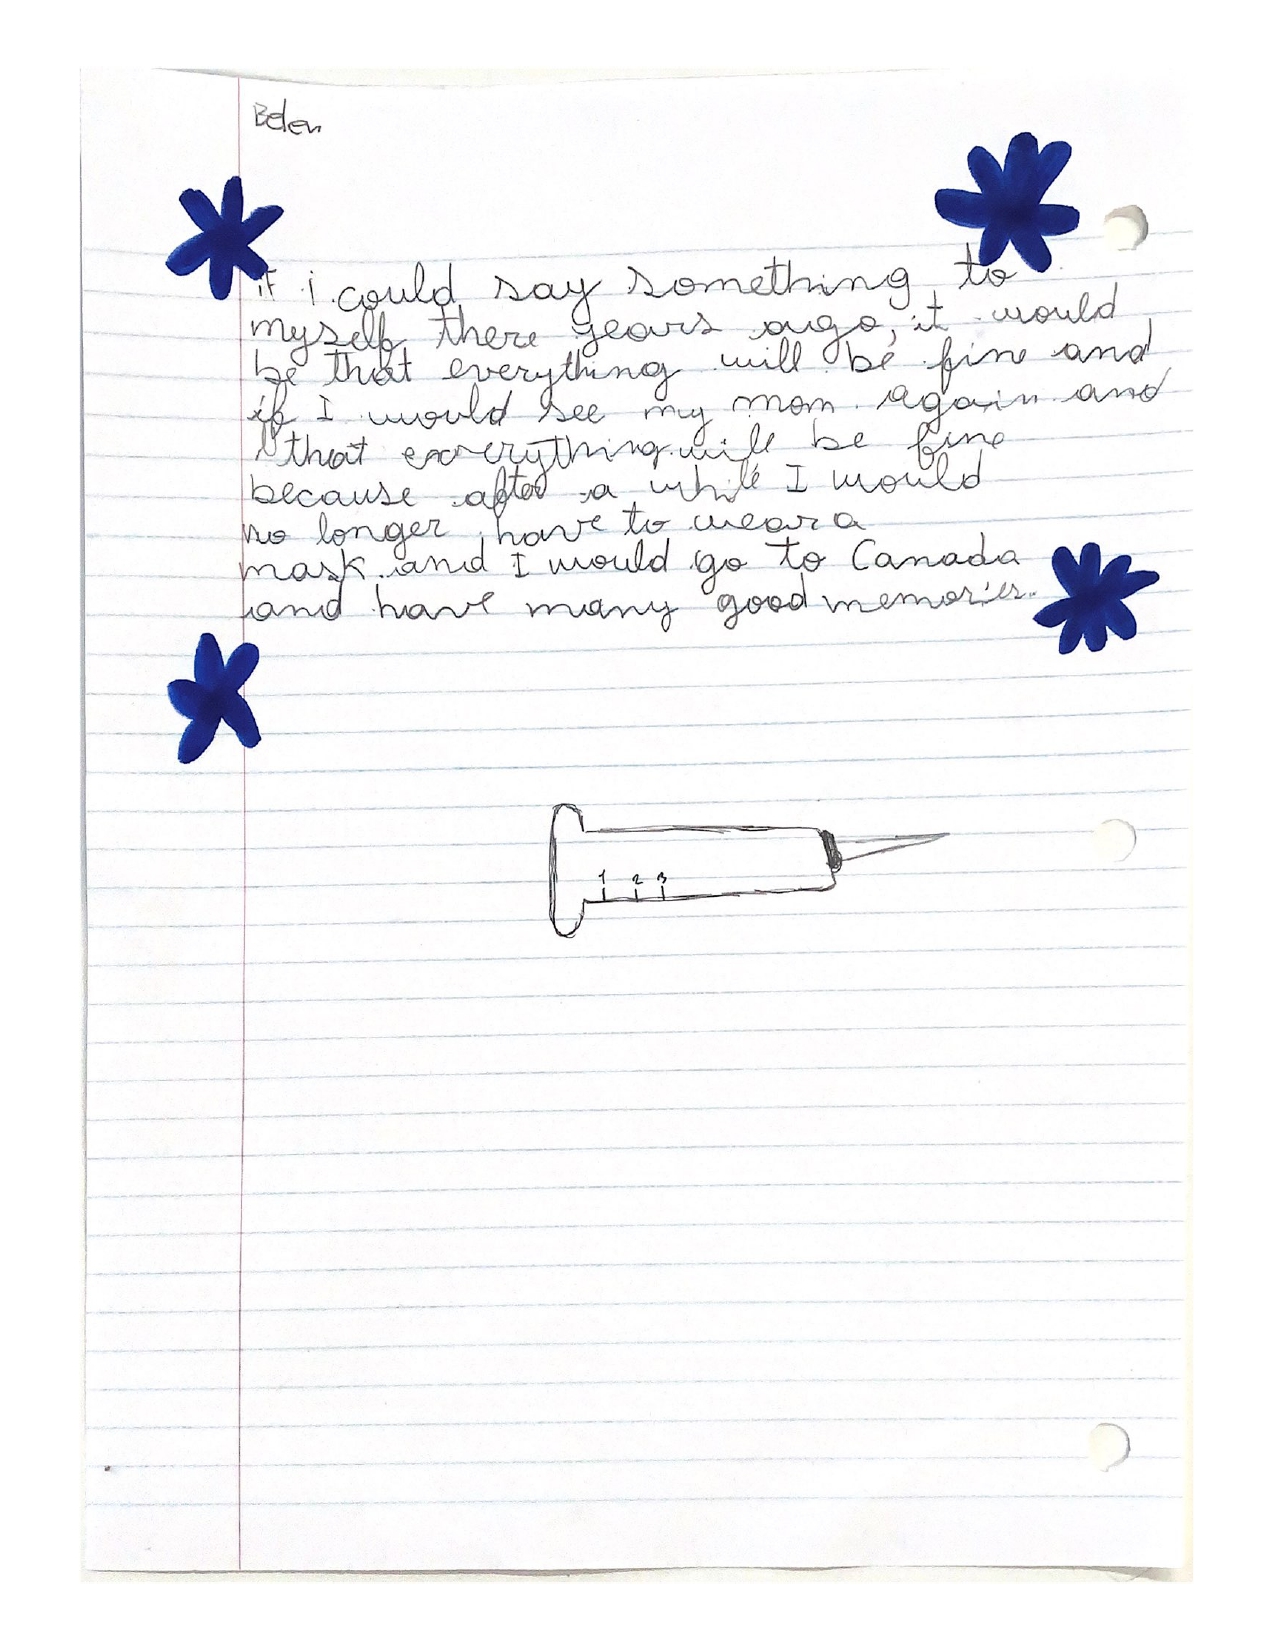 Belen
if i could say something to
myself there years ago, it would
be that everything will be fine and
if I would see my mom again and
that everything will be fine
because after a while I would
no longer have to wear a
mask and I would go to Canada
and have many good memories.
1 2 3